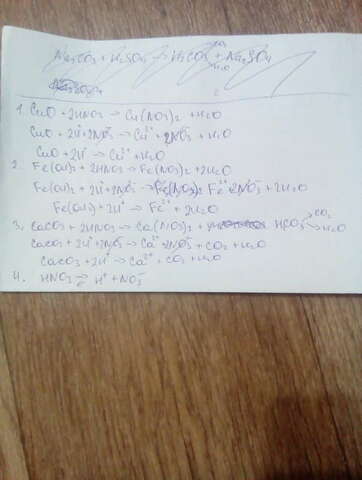 Na2CO3 + H2SO4 → H2CO3 + Na2SO4
CO2
H2O
1. CuO + 2HNO3 → Cu(NO3)2 + H2O
CuO + 2H⁺ + 2NO3⁻ → Cu²⁺ + 2NO3⁻ + H2O
CuO + 2H⁺ → Cu²⁺ + H2O
2. Fe(OH)2 + 2HNO3 → Fe(NO3)2 + 2H2O
Fe(OH)2 + 2H⁺ + 2NO3⁻ → Fe(NO3)2 Fe²⁺ + 2NO3⁻ + 2H2O
Fe(OH)2 + 2H⁺ → Fe²⁺ + 2H2O
3. CaCO3 + 2HNO3 → Ca(NO3)2 + HCO3 → CO2
→ H2O
CaCO3 + 2H⁺ + 2NO3⁻ → Ca²⁺ + 2NO3⁻ + CO2 + H2O
CaCO3 + 2H⁺ → Ca²⁺ + CO2 + H2O
4. HNO3 ⇄ H⁺ + NO3⁻